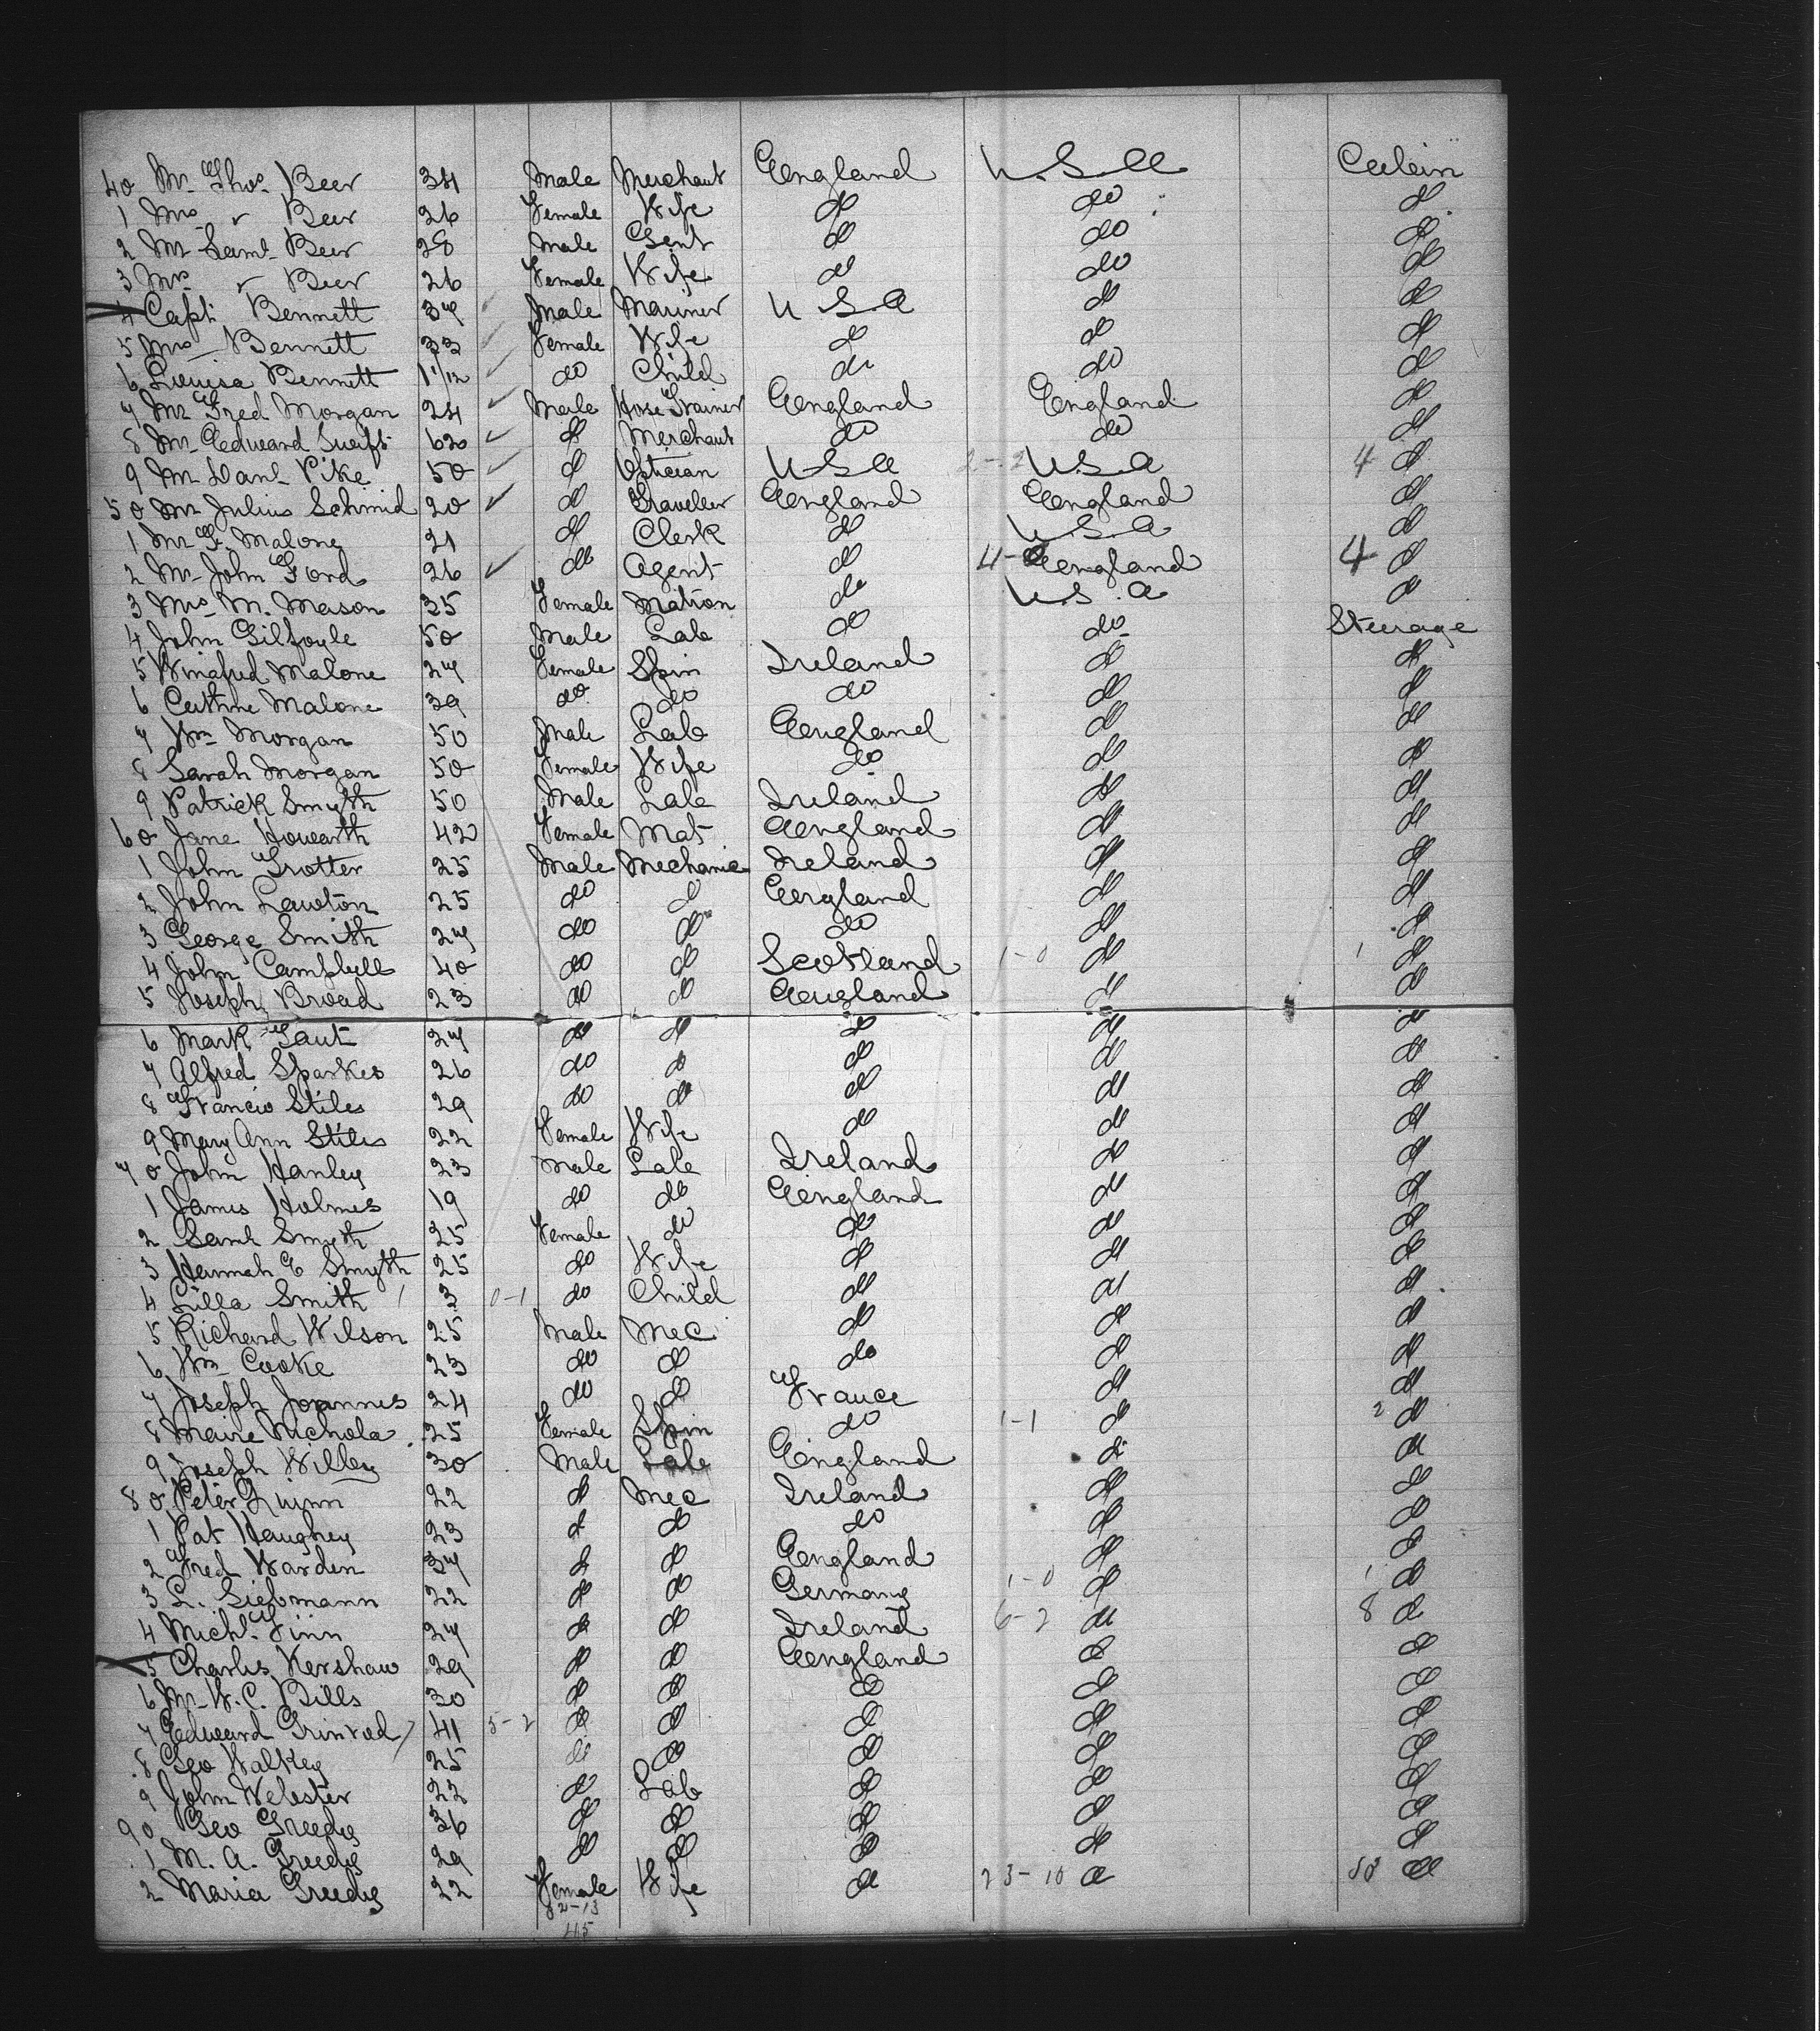 40 Mr Thos Beer 34 Male Merchant England U.S.A Cabin
1 Mrs " Beer 26 Female Wife do do do
2 Mr Saml Beer 28 Male Gent do do do
3 Mrs " Beer 26 Female Wife do do do
4 Capt Bennett 37 Male Mariner U.S.A do do
5 Mrs Bennett 33 Female Wife do do do
6 Louisa Bennett 1 1/12 do Child do do do
7 Mr Fred Morgan 24 Male Hose Trainer England England do
8 Mr Edward Swift 62 do Merchant do do do
9 Mr Danl Pike 50 do Optician U.S.A 2-2 U.S.A 4 do
50 Mr Julius Schmid 20 do Traveller England England do
1 Mr F. Malone 21 do Clerk do U.S.A do
2 Mr John Ford 26 do Agent do 4-0 England 4 do
3 Mrs M. Mason 35 Female Matron do U.S.A do
4 John Gilfoyle 50 Male Lab do do Steerage
5 Winifred Malone 27 Female Spin Ireland do do
6 Cathrne Malone 39 do do do do do
7 Wm Morgan 50 Male Lab England do do
8 Sarah Morgan 50 Female Wife do do do
9 Patrick Smyth 50 Male Lab Ireland do do
60 Jane Howarth 42 Female Mat England do do
1 John Trotter 25 Male Mechanic Ireland do do
2 John Lawton 25 do do England do do
3 George Smith 27 do do do do do
4 John Campbell 40 do do Scotland 1-0 do 1 do
5 Joseph Broad 23 do do England do do
6 Mark Gaut 27 do do do do do
7 Alfred Sparkes 26 do do do do do
8 Francis Stiles 29 do do do do do
9 Mary Ann Stiles 22 Female Wife do do do
70 John Hanley 23 Male Lab Ireland do do
1 James Holmes 19 do do England do do
2 Saml Smyth 25 Female do do do do
3 Hannah E Smyth 25 do Wife do do do
4 Lilla Smith 3 0-1 do Child do do do
5 Richard Wilson 25 Male Mec do do do
6 Wm Cooke 23 do do do do do
7 Joseph Joannes 24 do do France do do
8 Maire Nichola 25 Female Spin do 1-1 do 2 do
9 Joseph Willey 30 Male Lab England do do
80 Peter Quinn 22 do Mec Ireland do do
1 Pat Haughey 23 do do do do do
2 Fred Warden 37 do do England do do
3 L. Siebmann 22 do do Germany 1-0 do 1 do
4 Michl Finn 27 do do Ireland 6-2 do 8 do
5 Charles Kershaw 29 do do England do do
6 Mr W.C. Bills 30 do do do do do
7 Edward Grinrod 41 5-2 do do do do do
8 Geo Walkey 25 do do do do do
9 John Webster 22 do Lab do do do
90 Geo Greedy 36 do do do do do
1 M. A. Greedy 29 do do do do do
2 Maria Greedy 22 Female Wife do 23-10 do do